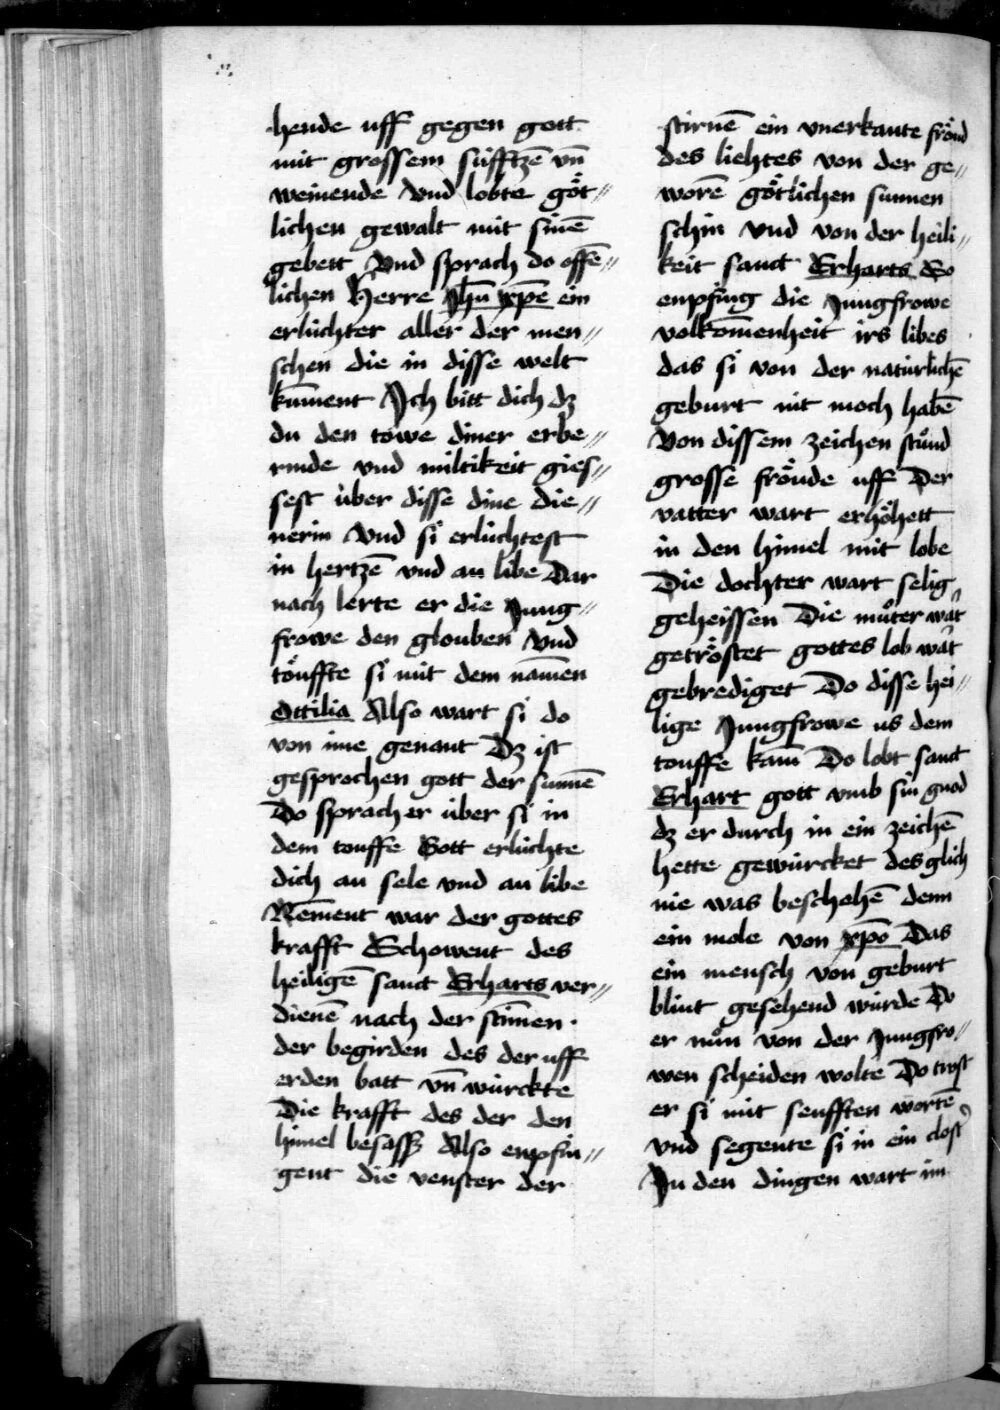 hende uff gegen gott
mit grossem süfftzē vn̄
weinende vnd lobte göt〃
lichen gewalt mit sinē
gebett Vnd sprach do offē〃
lichen Herre Jhū xp̄e ein
erlüchter aller der men〃
schen die in disse welt
kūment Ich bitt dich dz
du den towe diner erbe〃
rmde vnd miltikeit gies〃
sest über disse dine die〃
nerin Vnd si erlüchtest
in hertzē vnd an libe Dar
nach lerte er die Jung〃
frowe den glouben Vnd
töuffte si mit dem namē̄n
Ottilia Also wart si do
von ime genant Dz ist
gesprochen gott der sunnē
Do sprach er über si in
dem touffe Gott erlüchte
dich an sele vnd an libe
Nēment war der gottes
krafft Schowent des
heiligē sanct Erharts ver〃
dienē nach der stīmen ·
der begirden des der uff
erden batt vn̄ würckte
Die krafft des der den
himel besassz Also enpfin〃
gent die venster der
stirnē ein vnerkante fröud
des liehtes von der ge〃
worē götlichen sunnen
schin vnd von der heili〃
keit sanct Erharts So
enpfing die Jungfrowe
volkōmenheit irs libes
das si von der natürlichē
geburt nit moch habē
Von dissem zeichen stůnd
grosse fröude uff Der
vatter wart erhöhett
in den himel mit lobe
Die dochter wart selig
geheissen Die můter wart
getröstet gottes lob wart
gebrediget Do disse hei〃
lige Jungfrowe us dem
touffe kam̄ Do lobt sanct
Erhart gott vmb sin gnod
dz er durch in ein zeichē
hette gewürcket des glich
nie was beschehē denn
ein mole von xp̄o Das
ein mensch von geburt
blint gesehend würde Do
er nůn von der Jungfro〃
wen scheiden wolte Do trost
er si mit senfften wortē
vnd segente si in ein clost'
In den dingen wart im